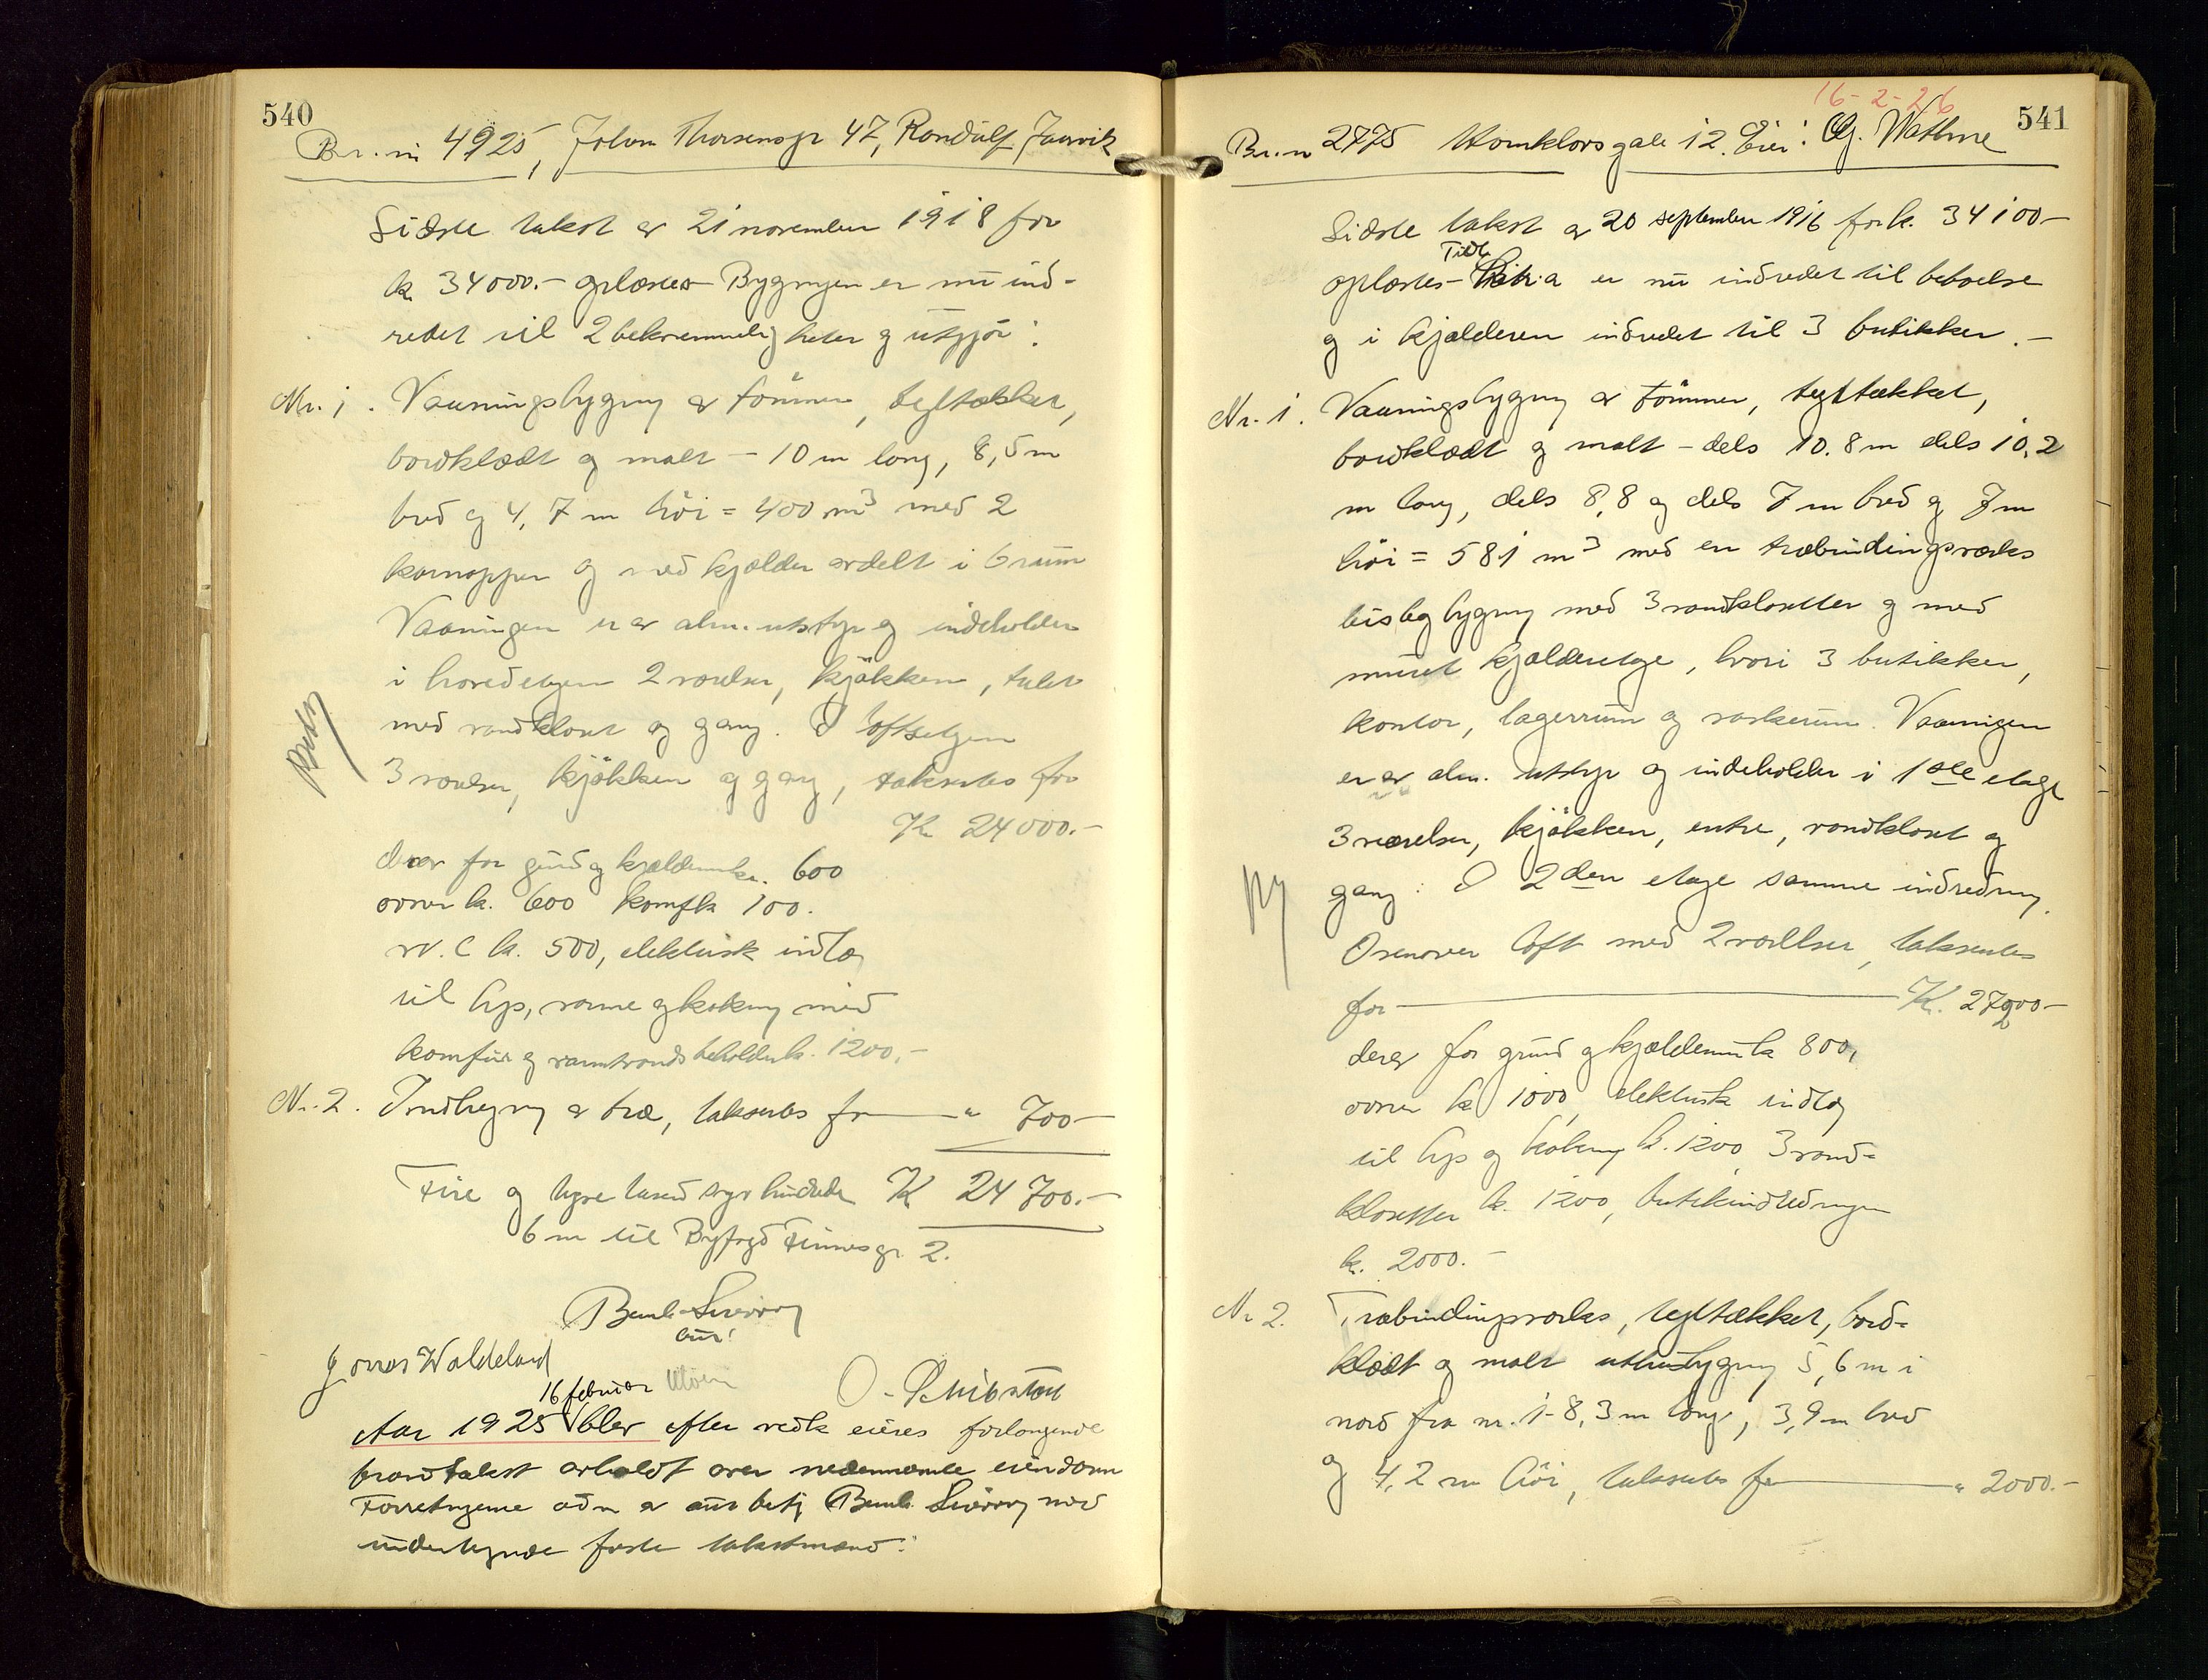 540
Br. nr 4925, Johan Thorsensgr 47, Randulf Jaarvik
Sidste takst av 21 november 1918 for
kr. 34000.- opløstes Bygningen er nu ind-
redet til 2 bekvemmeligheter og utgjør:
Nr. 1. Vaaningsbygning av tømmer, tegltækket,
bordklædt og malt - 10 m lang, 8,5 m
bred og 4,7 m høi = 400 m3 med 2
karnapper og med kjælder avdelt i 6 rum
Vaaningen er av alm. utstyr og indeholder
i hovedetagen 2 værelser, kjøkken,
med vandkloset og gang. I loftsetagen
3 værelser, kjøkken og gang, taksertes for
Kr 24000.-
derav for grund og kjældermur kr. 600
ovner kr. 600 komfkr 100.
W.C kr. 500, elektrisk indlæg
til lys, varme og kokning med
komfur og varmtvandsbeholder kr. 1200.-
Nr. 2. Indhegning av træ, taksertes for — " 700-
Fire og tyve tusend syv hundrede Kr 24700.-
6 m til Byfogd Finnesgr. 2.
Bernh Sivevaag
aut!
Jonas Waldeland
O. Schibsted
16 februar
Aar 1925 blev efter vedk eieres forlangende
brandtakst avholdt over nedennævnte eiendom
Forretningerne adm av aut betj Bernh. Sivevaag med
undertegnede faste takstmænd:
16-2-26
541
Br. nr 2775 Kornklovsgate 12. Eier: Wathne
Sidste takst av 20 september 1916 for kr. 34100-
Tidl
opløstes - er nu indredet til beboelse
og i kjælderen indredet til 3 butikker.-
Nr. 1. Vaaningsbygning av tømmer, tegltækket,
bordklædt og malt - dels 10.8 m dels 10,2
m lang, dels 8,8 og dels 7 m bred og 7 m
høi = 581 m3 med en træbindingsverks
bislagbygning med 3 vandklosetter og med
muret kjælderetage, hvori 3 butikker,
kontor, lagerrum og vaskerum. Vaaningen
er av alm. utstyr og indeholder i 1ste etage
3 værelser, kjøkken, entre, vandkloset og
gang. I 2den etage samme indredning.
Ovenover loft med 2 værelser, taksertes
for — Kr. 27900-
derav for grund og kjældermur kr 800,
ovner kr 1000, elektrisk indlæg
til lys og kokning kr. 1200, 3 vand-
klosetter kr. 1200, butikindredningen
kr. 2000.-
Nr 2. Træbindingsverks, tegltækket, bord-
klædt og malt uthusbygning 5,6 m i
nord fra nr. 1 - 8,3 m lang, 3,9 m bred
og 4,2 m høi, taksertes for — " 2000.-